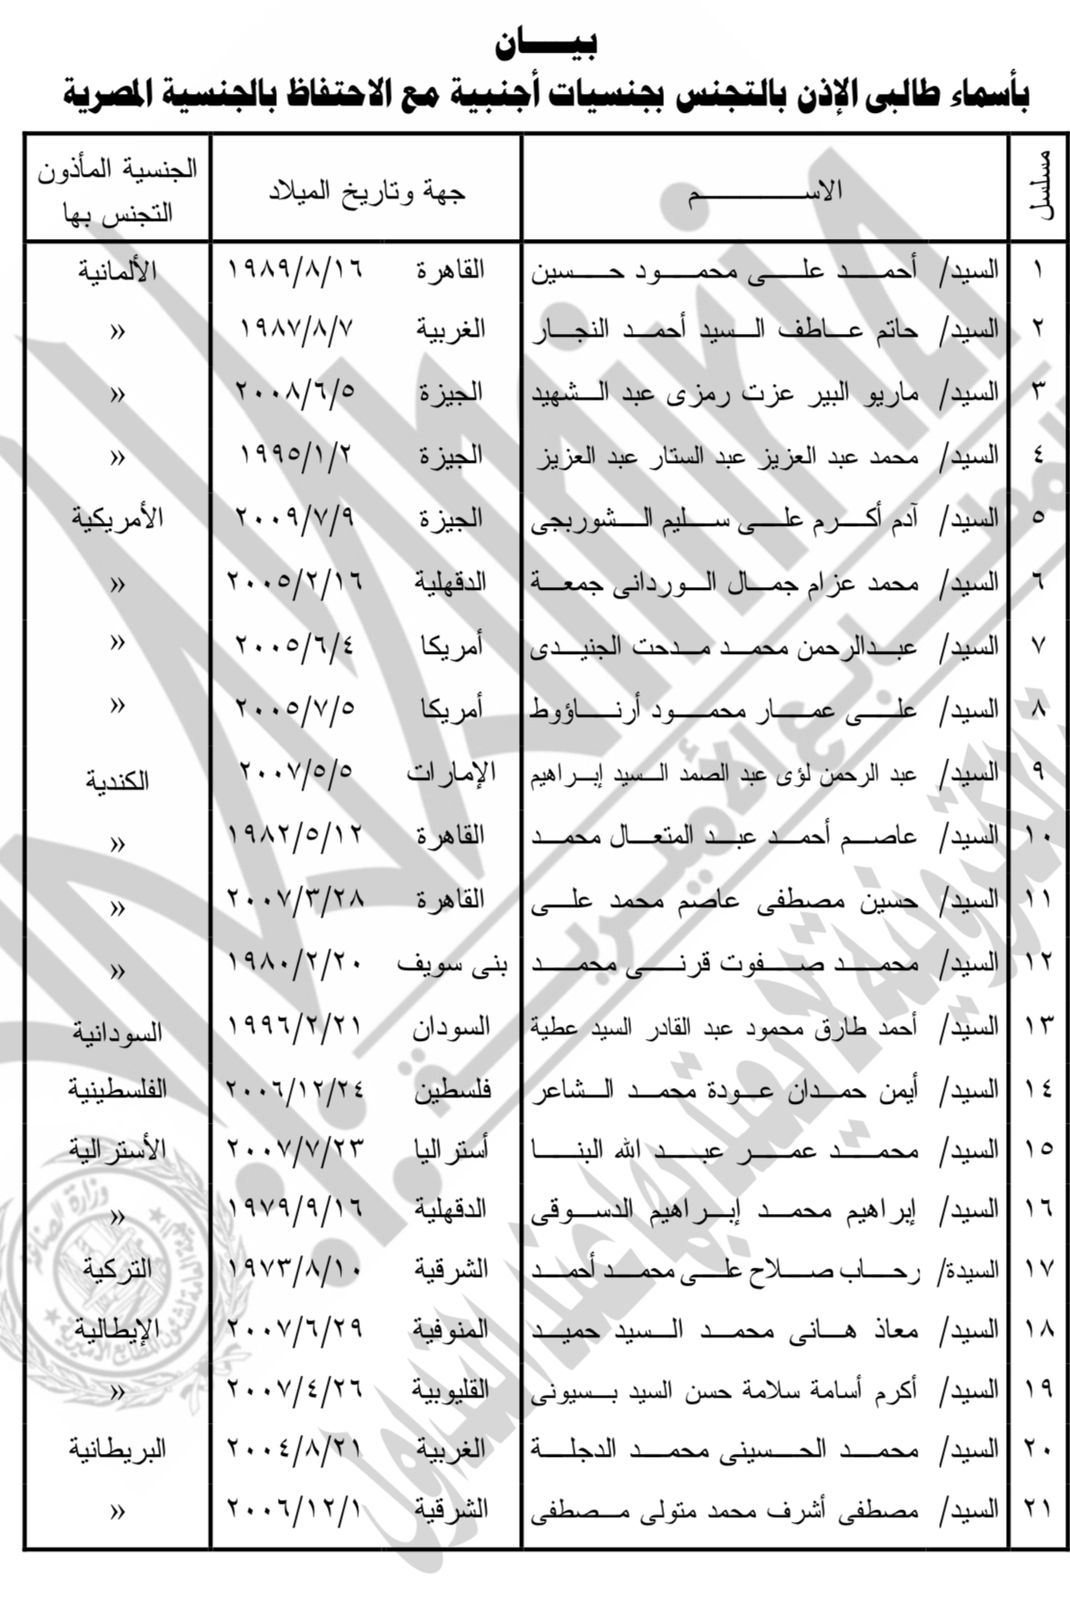 بيـــان
بأسماء طالبى الإذن بالتجنس بجنسيات أجنبية مع الاحتفاظ بالجنسية المصرية
مسلسل الاســـــم جهة وتاريخ الميلاد الجنسية المأذون التجنس بها
١ السيد/ أحمد على محمود حسين القاهرة ١٩٨٩/٨/١٦ الألمانية
٢ السيد/ حاتم عاطف السيد أحمد النجار الغربية ١٩٨٧/٨/٧ »
٣ السيد/ ماريو البير عزت رمزى عبد الشهيد الجيزة ٢٠٠٨/٦/٥ »
٤ السيد/ محمد عبد العزيز عبد الستار عبد العزيز الجيزة ١٩٩٥/١/٢ »
٥ السيد/ آدم أكرم على سليم الشوربجى الجيزة ٢٠٠٩/٧/٩ الأمريكية
٦ السيد/ محمد عزام جمال الوردانى جمعة الدقهلية ٢٠٠٥/٢/١٦ »
٧ السيد/ عبدالرحمن محمد مدحت الجنيدى أمريكا ٢٠٠٥/٦/٤ »
٨ السيد/ على عمار محمود أرناؤوط أمريكا ٢٠٠٥/٧/٥ »
٩ السيد/ عبد الرحمن لؤى عبد الصمد السيد إبراهيم الإمارات ٢٠٠٧/٥/٥ الكندية
١٠ السيد/ عاصم أحمد عبد المتعال محمد القاهرة ١٩٨٢/٥/١٢ »
١١ السيد/ حسين مصطفى عاصم محمد على القاهرة ٢٠٠٧/٣/٢٨ »
١٢ السيد/ محمد صفوت قرنى محمد بنى سويف ١٩٨٠/٢/٢٠ »
١٣ السيد/ أحمد طارق محمود عبد القادر السيد عطية السودان ١٩٩٦/٢/٢١ السودانية
١٤ السيد/ أيمن حمدان عودة محمد الشاعر فلسطين ٢٠٠٦/١٢/٢٤ الفلسطينية
١٥ السيد/ محمد عمر عبد الله البنا أستراليا ٢٠٠٧/٧/٢٣ الأسترالية
١٦ السيد/ إبراهيم محمد إبراهيم الدسوقى الدقهلية ١٩٧٩/٩/١٦ »
١٧ السيدة/ رحاب صلاح على محمد أحمد الشرقية ١٩٧٣/٨/١٠ التركية
١٨ السيد/ معاذ هانى محمد السيد حميد المنوفية ٢٠٠٧/٦/٢٩ الإيطالية
١٩ السيد/ أكرم أسامة سلامة حسن السيد بسيونى القليوبية ٢٠٠٧/٤/٢٦ »
٢٠ السيد/ محمد الحسينى محمد الدجلة الغربية ٢٠٠٤/٨/٢١ البريطانية
٢١ السيد/ مصطفى أشرف محمد متولى مصطفى الشرقية ٢٠٠٦/١٢/١ »